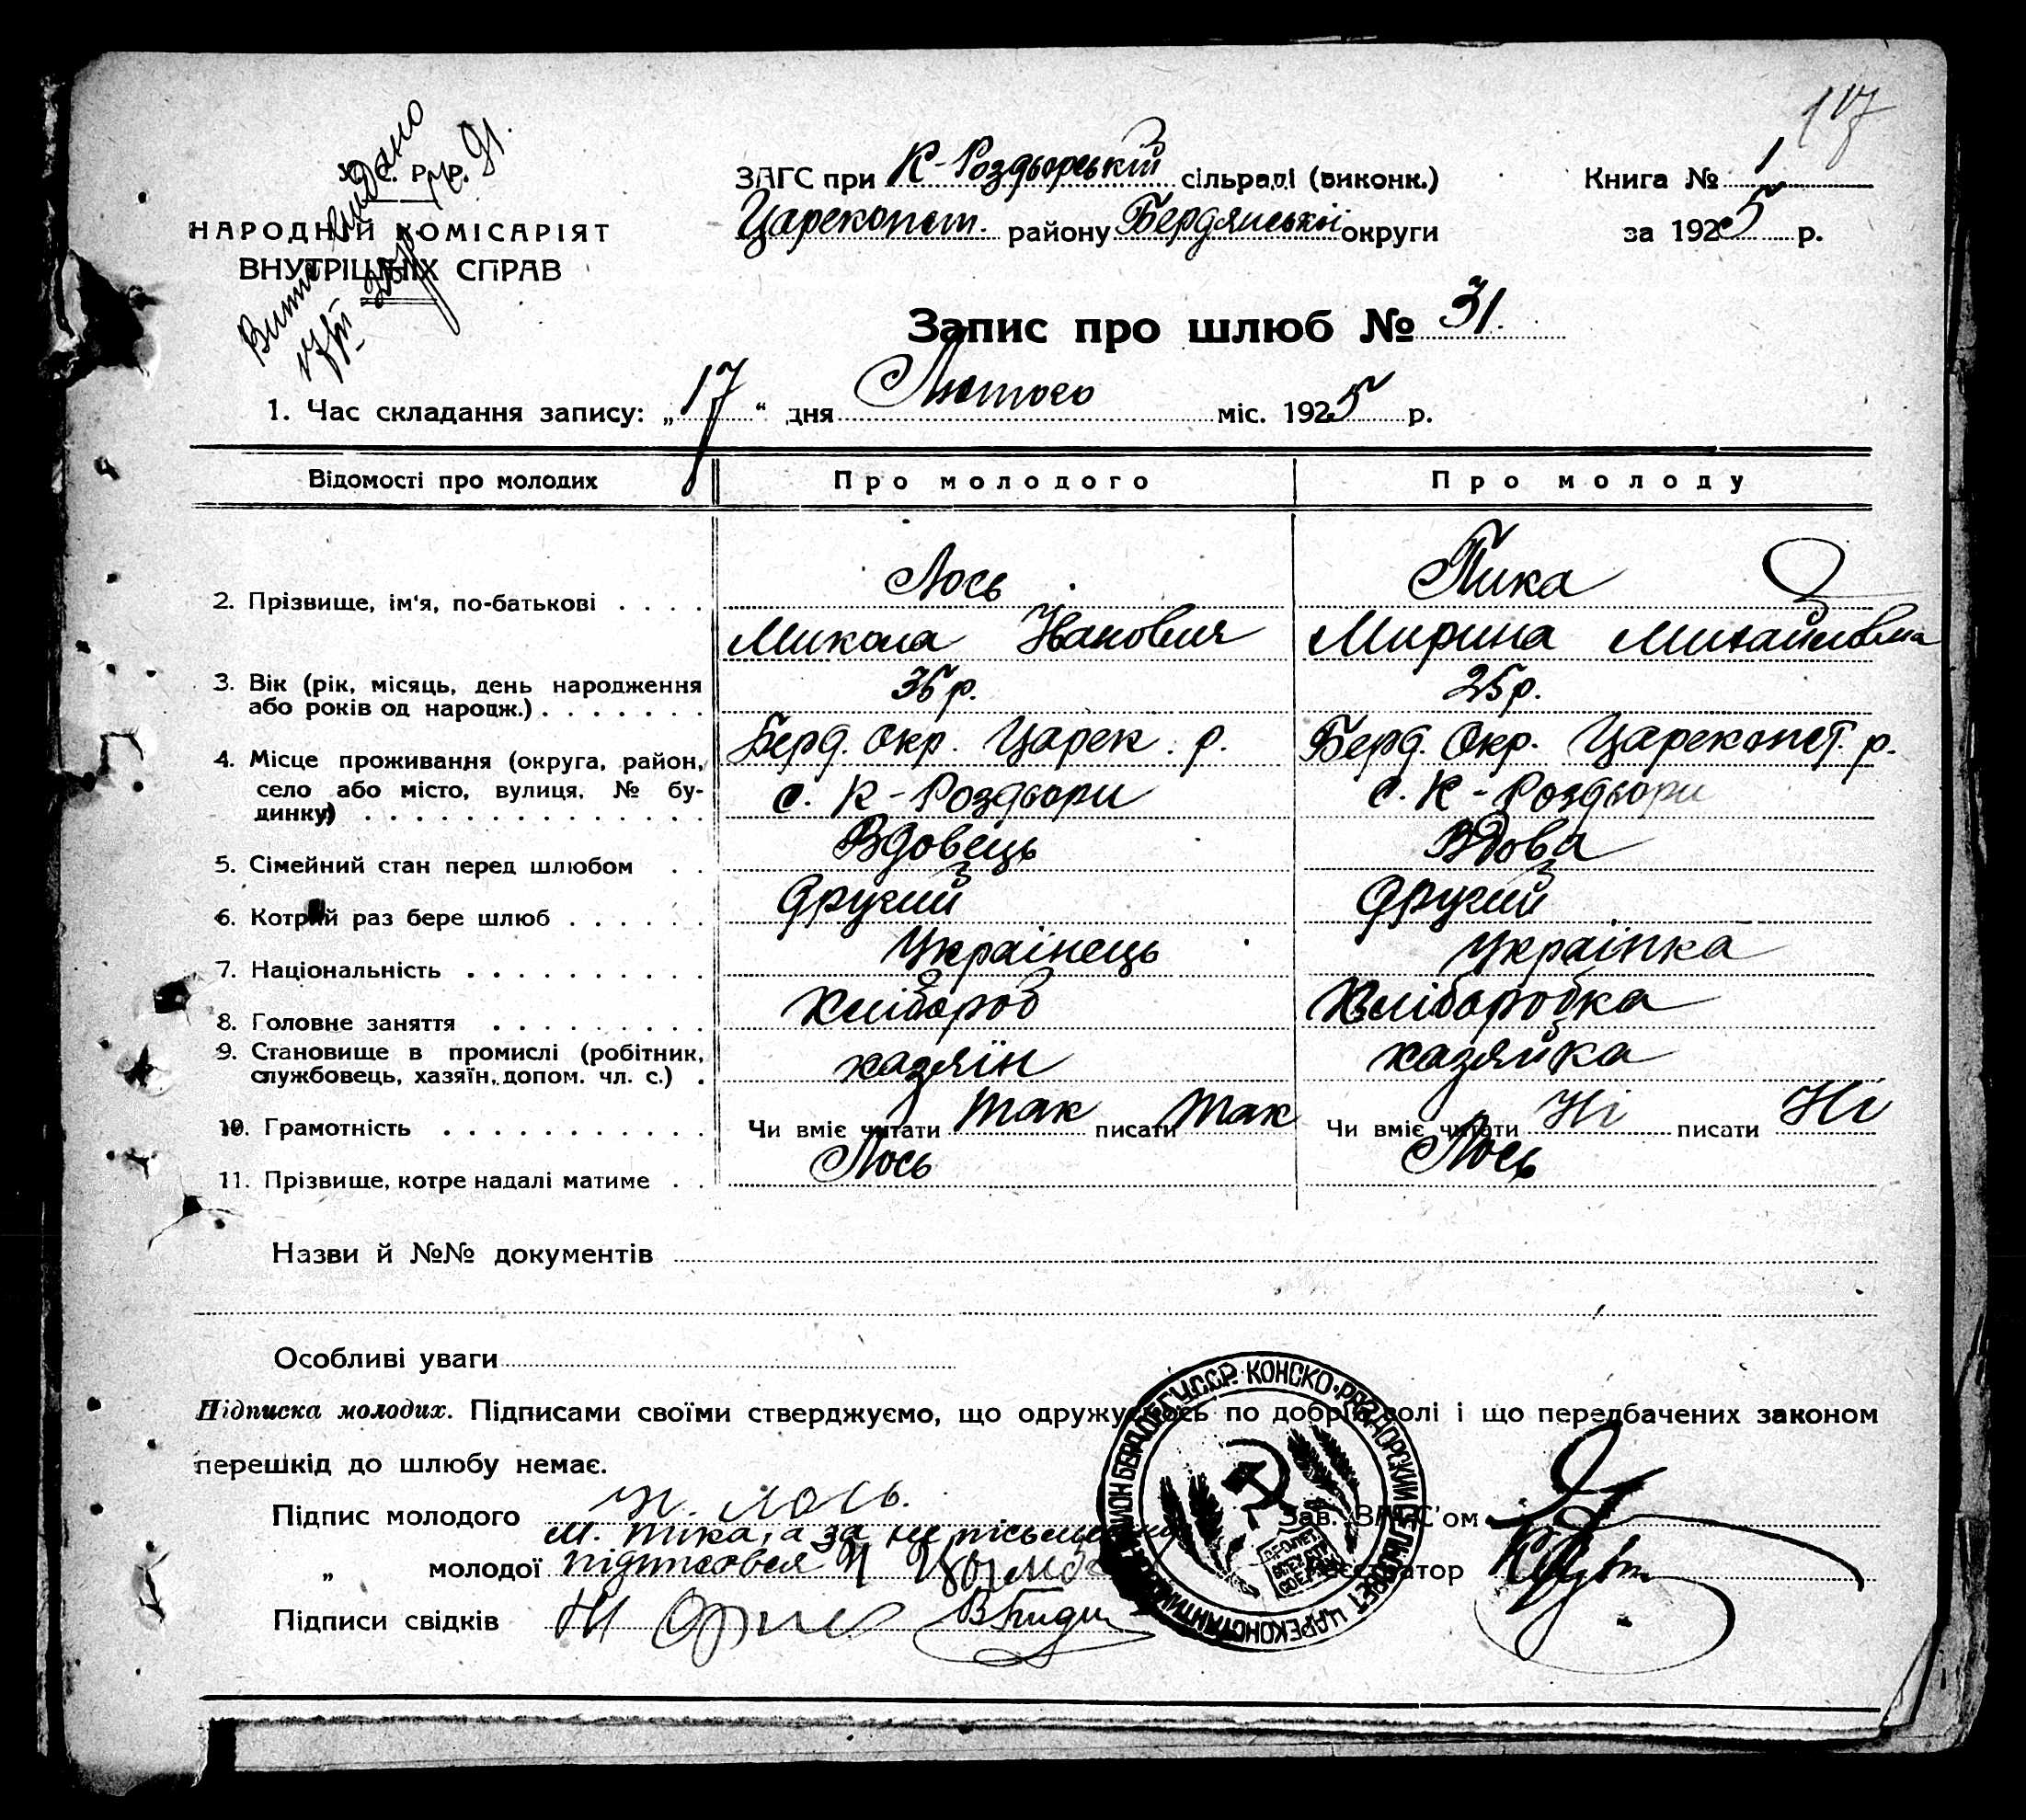 117
Витяг видано
У. С. Р. Р.
НАРОДНІЙ КОМІСАРІЯТ
ВНУТРІШНІХ СПРАВ
ЗАГС при К-Роздьорській сільраді (виконк.)
Цареконст. району Бердянської округи
Книга № 1
за 1925 р.
Запис про шлюб № 31.
1. Час складання запису: „17“ дня Лютого міс. 1925 р.
Відомості про молодих Про молодого Про молоду
2. Прізвище, ім'я, по-батькові Лось Пика
Микола Іванович Мирина Михайловна
3. Вік (рік, місяць, день народження
або років од народж.) 35 р. 25 р.
4. Місце проживання (округа, район, Берд. Окр. Царек. р. Берд. Окр. Цареконст. р.
село або місто, вулиця, № бу- с. К-Роздьори с. К-Роздьори
динку)
5. Сімейний стан перед шлюбом Вдовець Вдова
6. Котрий раз бере шлюб другий другий
7. Національність Українець Українка
8. Головне заняття Хлібороб Хліборобка
9. Становище в промислі (робітник,
службовець, хазяїн, допом. чл. с.) хазяїн хазяйка
10. Грамотність Чи вміє читати так писати так Чи вміє читати Ні писати Ні
11. Прізвище, котре надалі матиме Лось Лось
Назви й №№ документів
Особливі уваги
Підписка молодих. Підписами своїми стверджуємо, що одружуємось по добрій волі і що передбачених законом
перешкід до шлюбу немає.
Підпис молодого Н. Лось.
М. Піка, а за не письменну
„ молодої підписався
Підписи свідків
Зав. ЗАГС'ом
Реєстратор
У.С.С.Р. КОНСКО-РАЗДОРСКИЙ СЕЛЬСОВЕТ ЦАРЕКОНСТАНТИНОВСК. РАЙОН БЕРД. ОКР.
ПРОЛЕТ. ВСЕХ СТР. СОЕД.